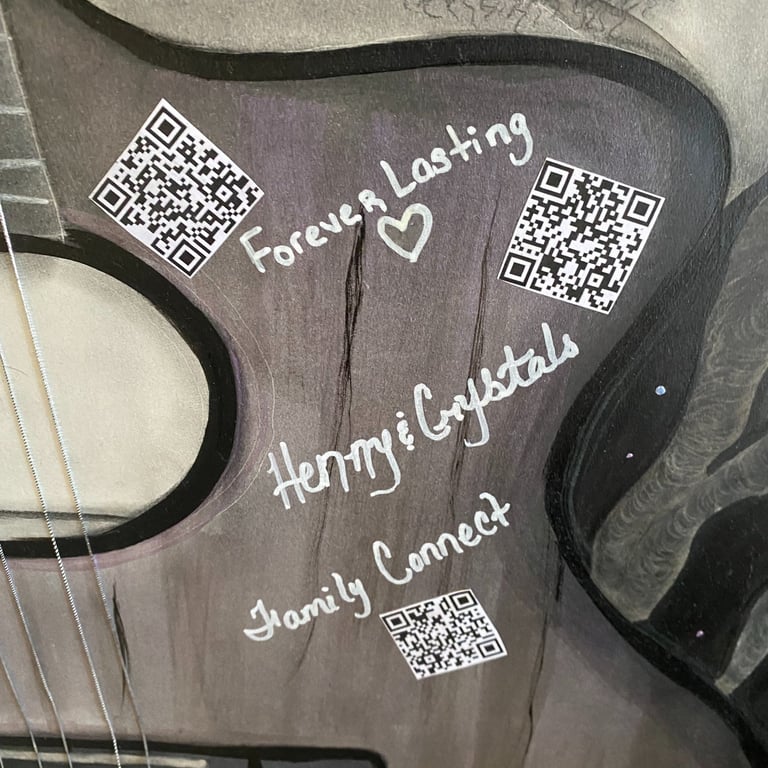 Forever Lasting
Henny & Crystals
Family Connect